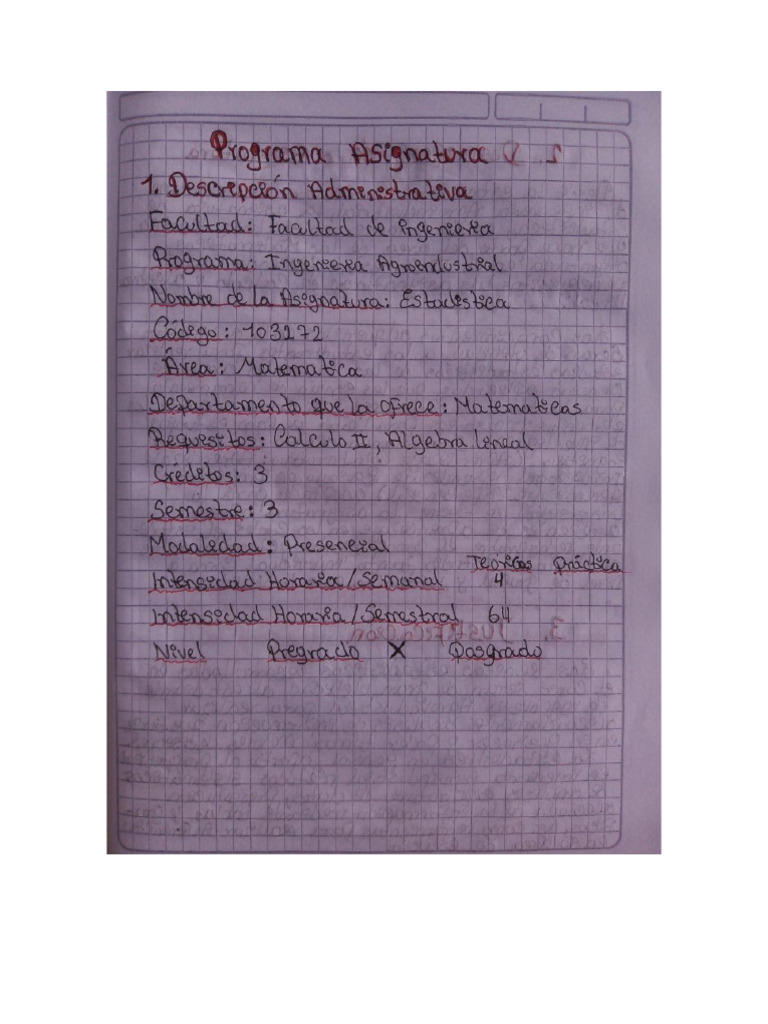 Programa Asignatura
1. Descripción Administrativa
Facultad: Facultad de ingenieria
Programa: Ingenieria Agroindustrial
Nombre de la Asignatura: Estadistica
Código: 103272
Área: Matematica
Departamento que la ofrece: Matematicas
Requisitos: Cálculo II, Algebra lineal
Créditos: 3
Semestre: 3
Modalidad: Presencial
Teóricas Práctica
Intensidad Horaria/Semanal 4
Intensidad Horaria/Semestral 64
Nivel Pregrado X Posgrado